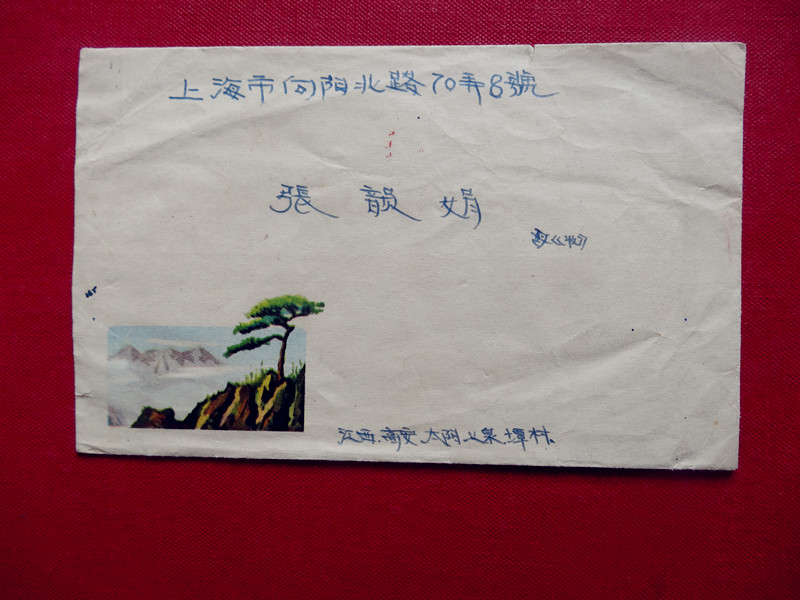 上海市向阳北路70弄8號
張韻娟
江西.高安.太阳.上泉.墰林.